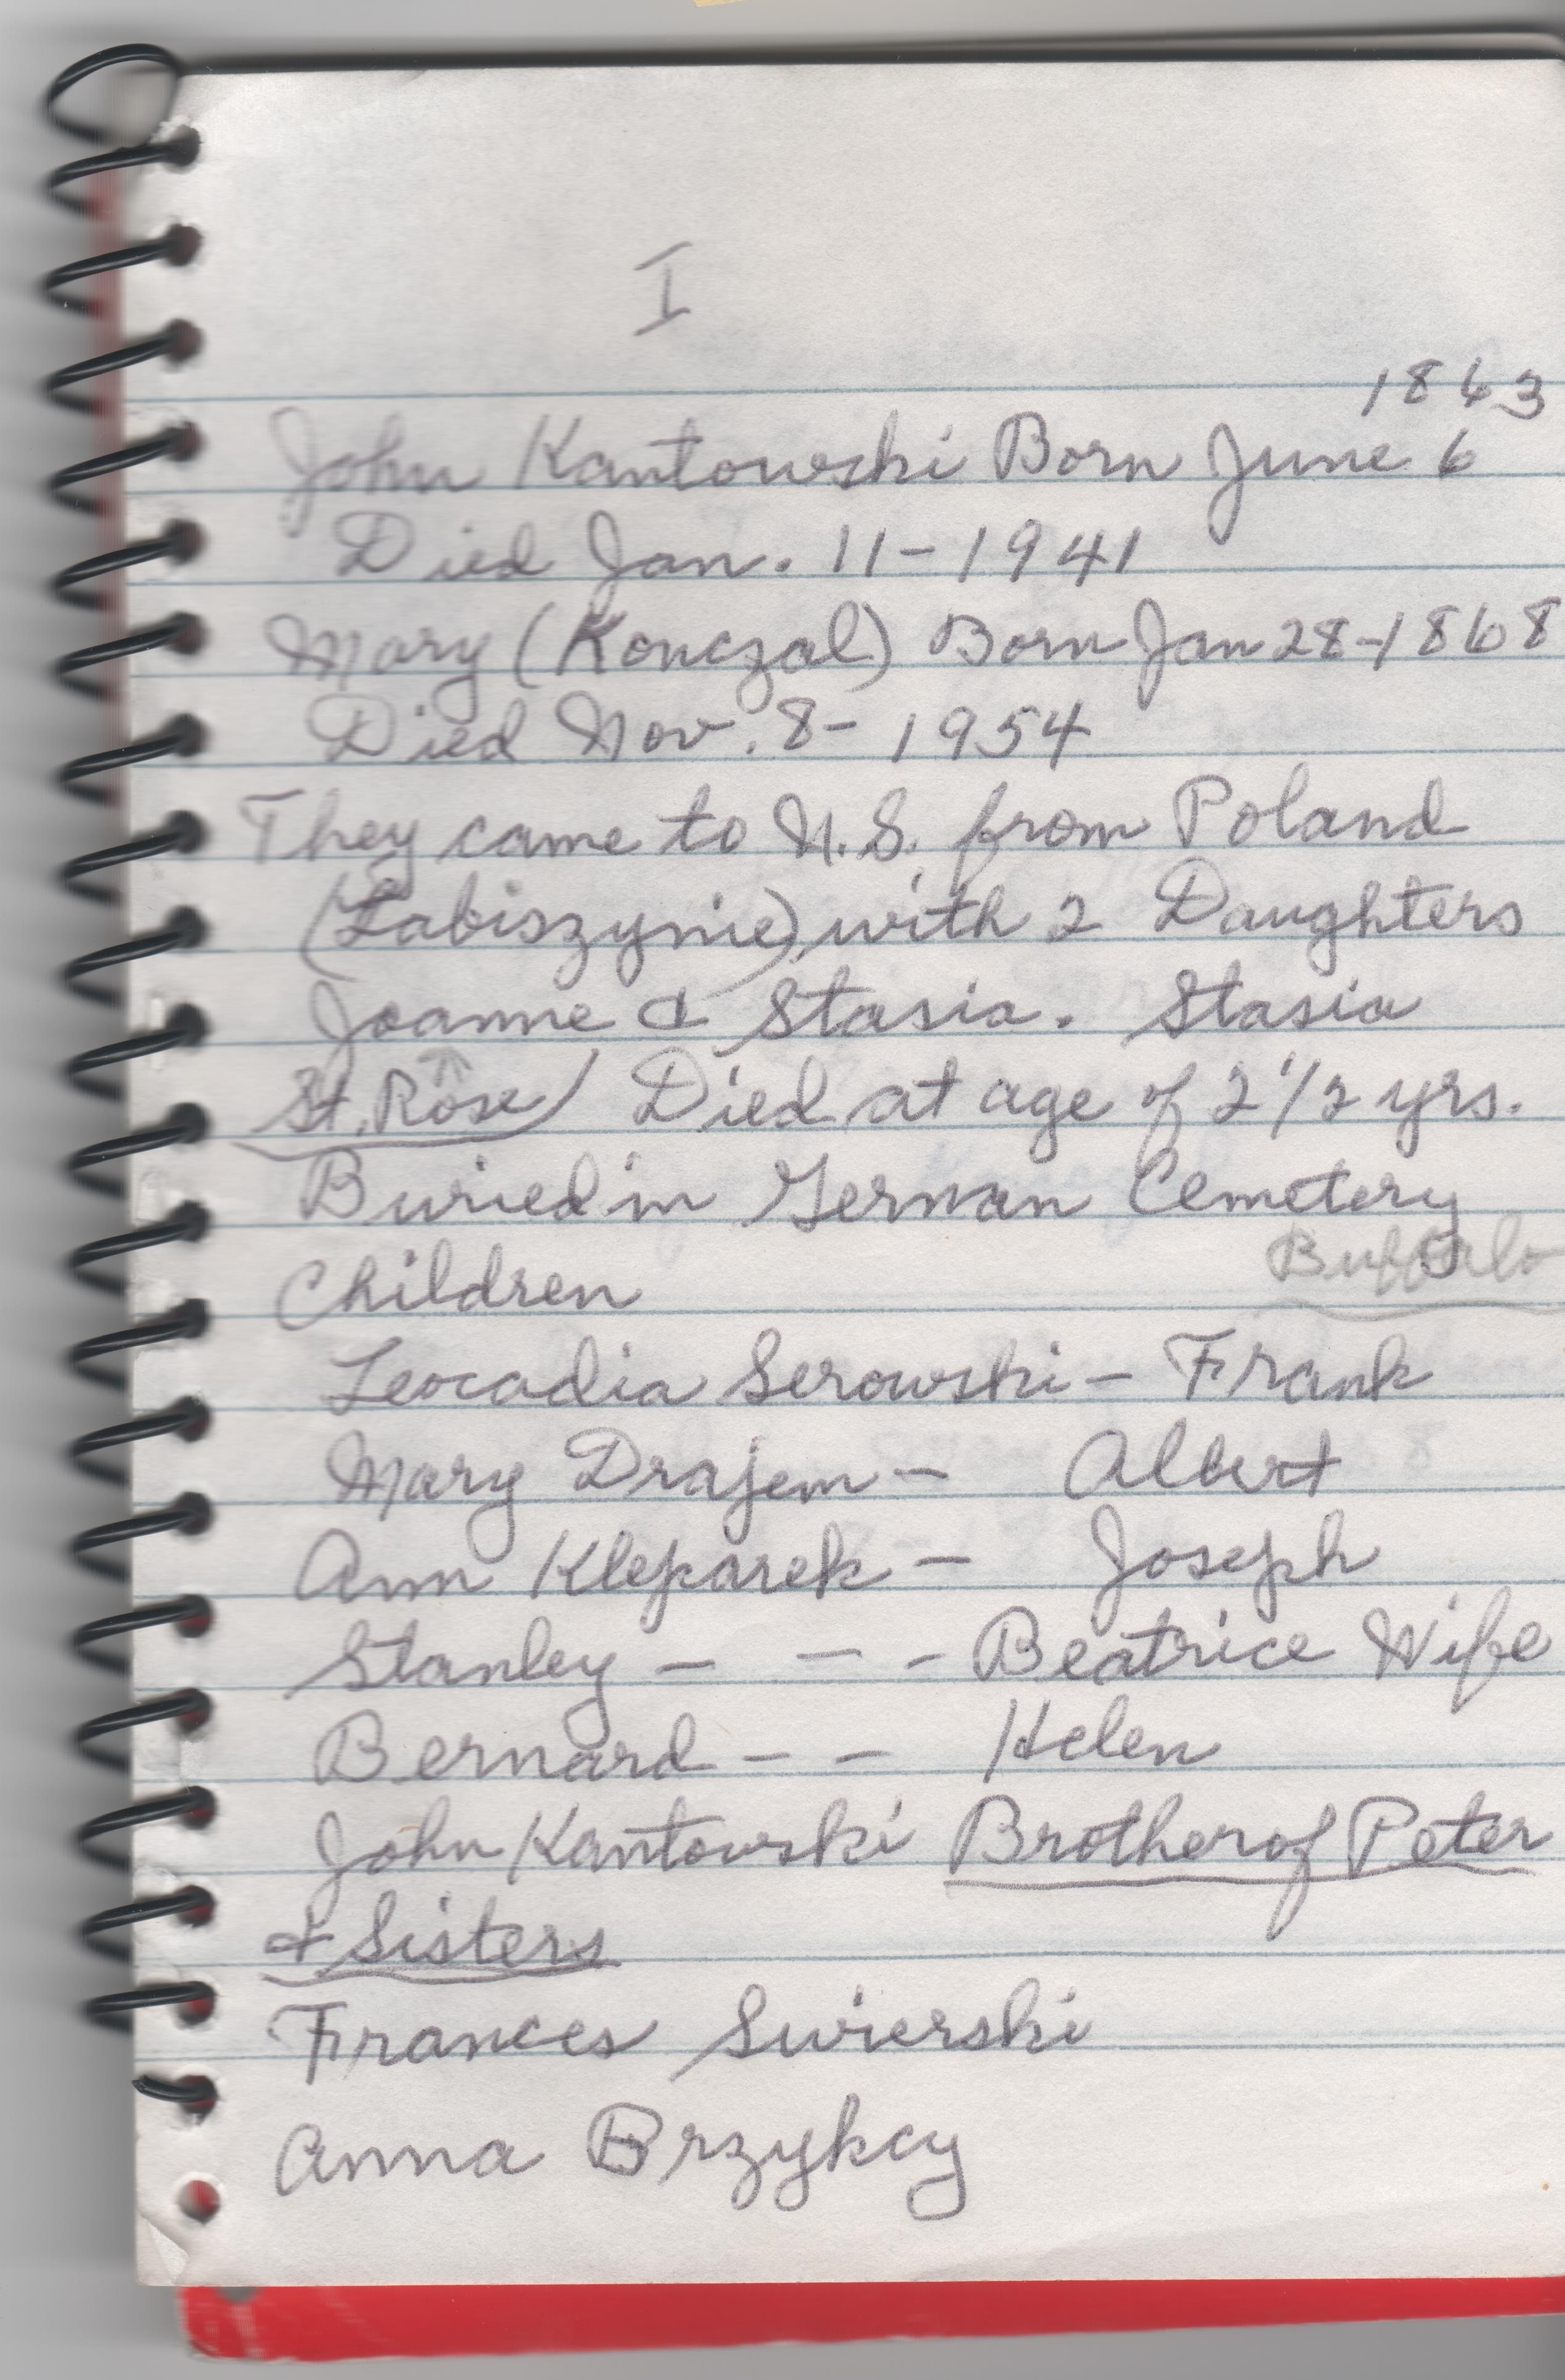 I
1863
John Kantowski Born June 6
Died Jan. 11-1941
Mary (Konczal) Born Jan 28-1868
Died Nov. 8-1954
They came to U.S. from Poland
(Labiszynie) with 2 Daughters
Joanne & Stasia. Stasia
St. Rose) Died at age of 2 1/2 yrs.
Buried in German Cemetery
Buffalo
Children
Leocadia Serowski - Frank
Mary Drajem - Albert
Ann Kleparek - Joseph
Stanley - - - Beatrice Wife
Bernard - - Helen
John Kantowski Brother of Peter
& Sisters
Frances Swierski
Anna Brzykcy